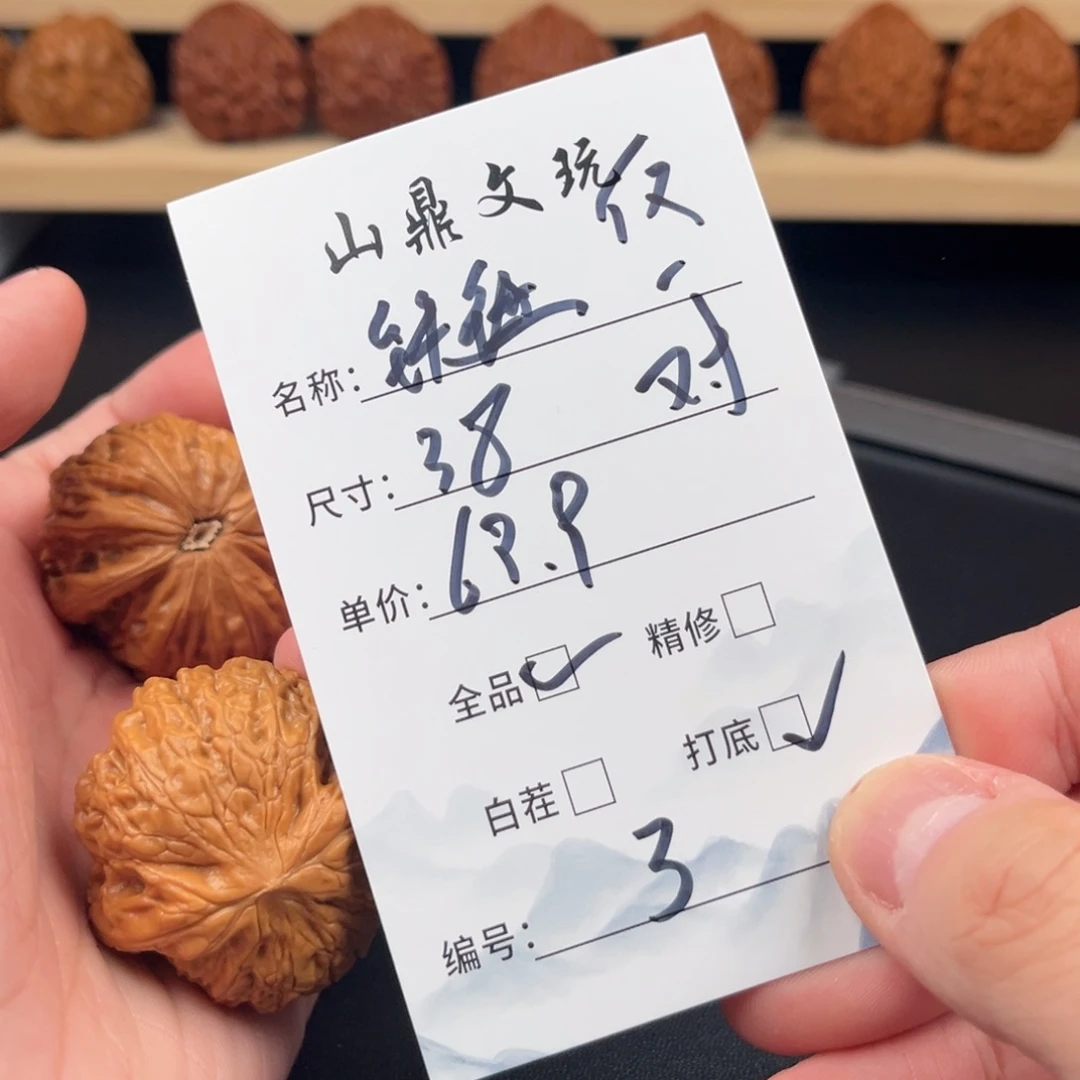 山鼎文玩
仅一对
名称：
尺寸：38
单价：69.9
全品 精修
白茬 打底
编号：3